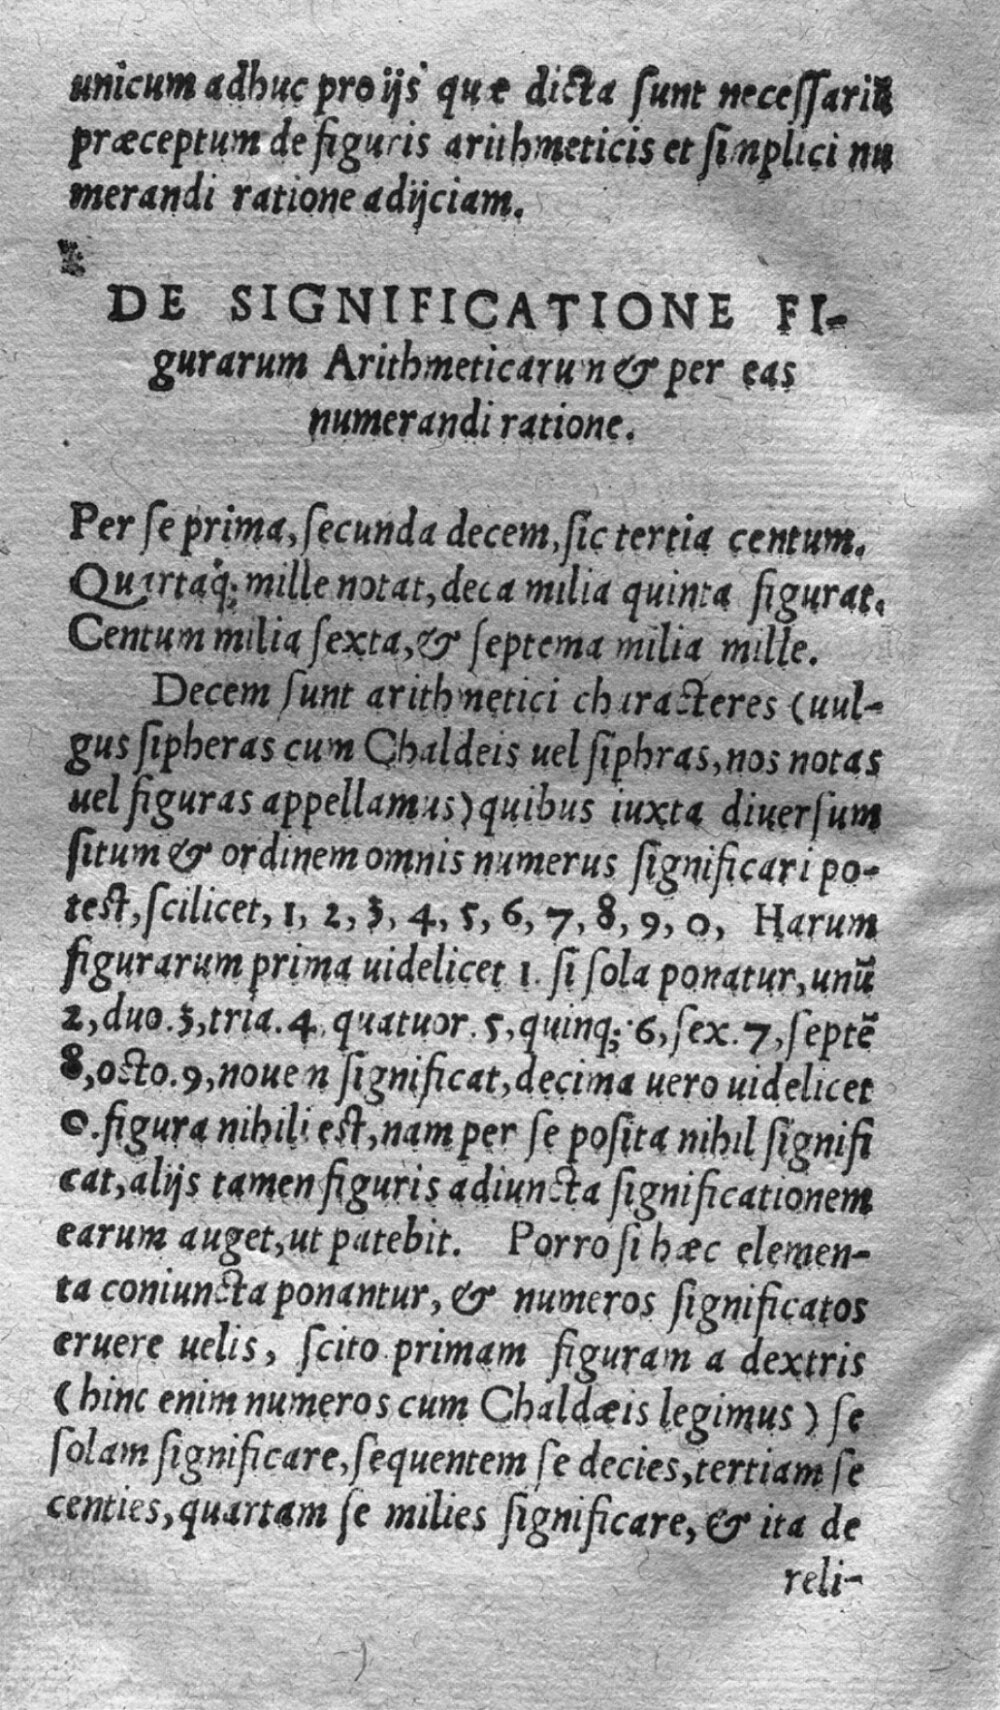 unicum adhuc pro ijs quæ dicta ſunt neceſſariū
præceptum de figuris arithmeticis et ſimplici nu
merandi ratione adijciam.
DE SIGNIFICATIONE FI-
gurarum Arithmeticarum & per eas
numerandi ratione.
Per ſe prima, ſecunda decem, ſic tertia centum.
Quartaq; mille notat, deca milia quinta figurat.
Centum milia ſexta, & ſeptema milia mille.
Decem ſunt arithmetici characteres (uul-
gus ſipheras cum Chaldeis uel ſiphras, nos notas
uel figuras appellamus) quibus iuxta diuerſum
ſitum & ordinem omnis numerus ſignificari po-
teſt, ſcilicet, 1, 2, 3, 4, 5, 6, 7, 8, 9, 0, Harum
figurarum prima uidelicet 1. ſi ſola ponatur, unū
2, duo. 3, tria. 4. quatuor. 5, quinq; 6, ſex. 7, ſeptē
8, octo. 9, nouen ſignificat, decima uero uidelicet
0. figura nihili eſt, nam per ſe poſita nihil ſignifi
cat, alijs tamen figuris adiuncta ſignificationem
earum auget, ut patebit. Porro ſi hæc elemen-
ta coniuncta ponantur, & numeros ſignificatos
eruere uelis, ſcito primam figuram a dextris
(hinc enim numeros cum Chaldæis legimus) ſe
ſolam ſignificare, ſequentem ſe decies, tertiam ſe
centies, quartam ſe milies ſignificare, & ita de
reli-